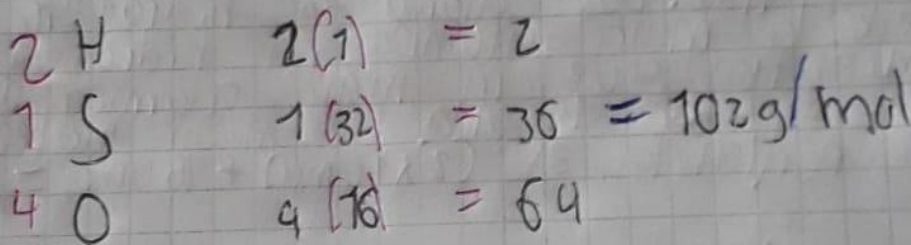 2 H 2(1) = 2
1 S 1(32) = 36 = 102g/mol
4 O 4(16) = 64